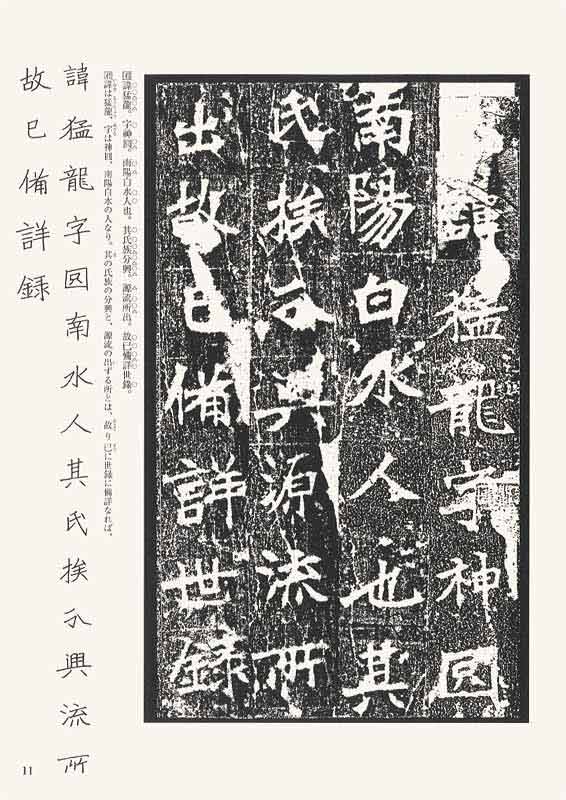 諱猛龍字神囧
南陽白水人也其
氏族分興源流所
出故已備詳世録
諱猛龍。字神囧。南陽白水人也。其氏族分興。源流所出。故已備詳世録。
諱は猛龍、字は神囧、南陽白水の人なり。其の氏族の分興と、源流の出ずる所とは、故り已に世録に備詳なれば、
諱猛龍字囧南水人其氏族分興流所
故已備詳録
11